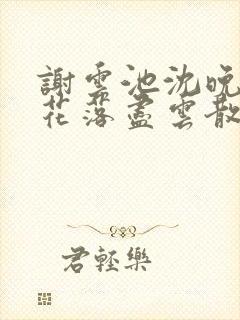 謝雲池沈晚
花落盡雲散
君輕樂